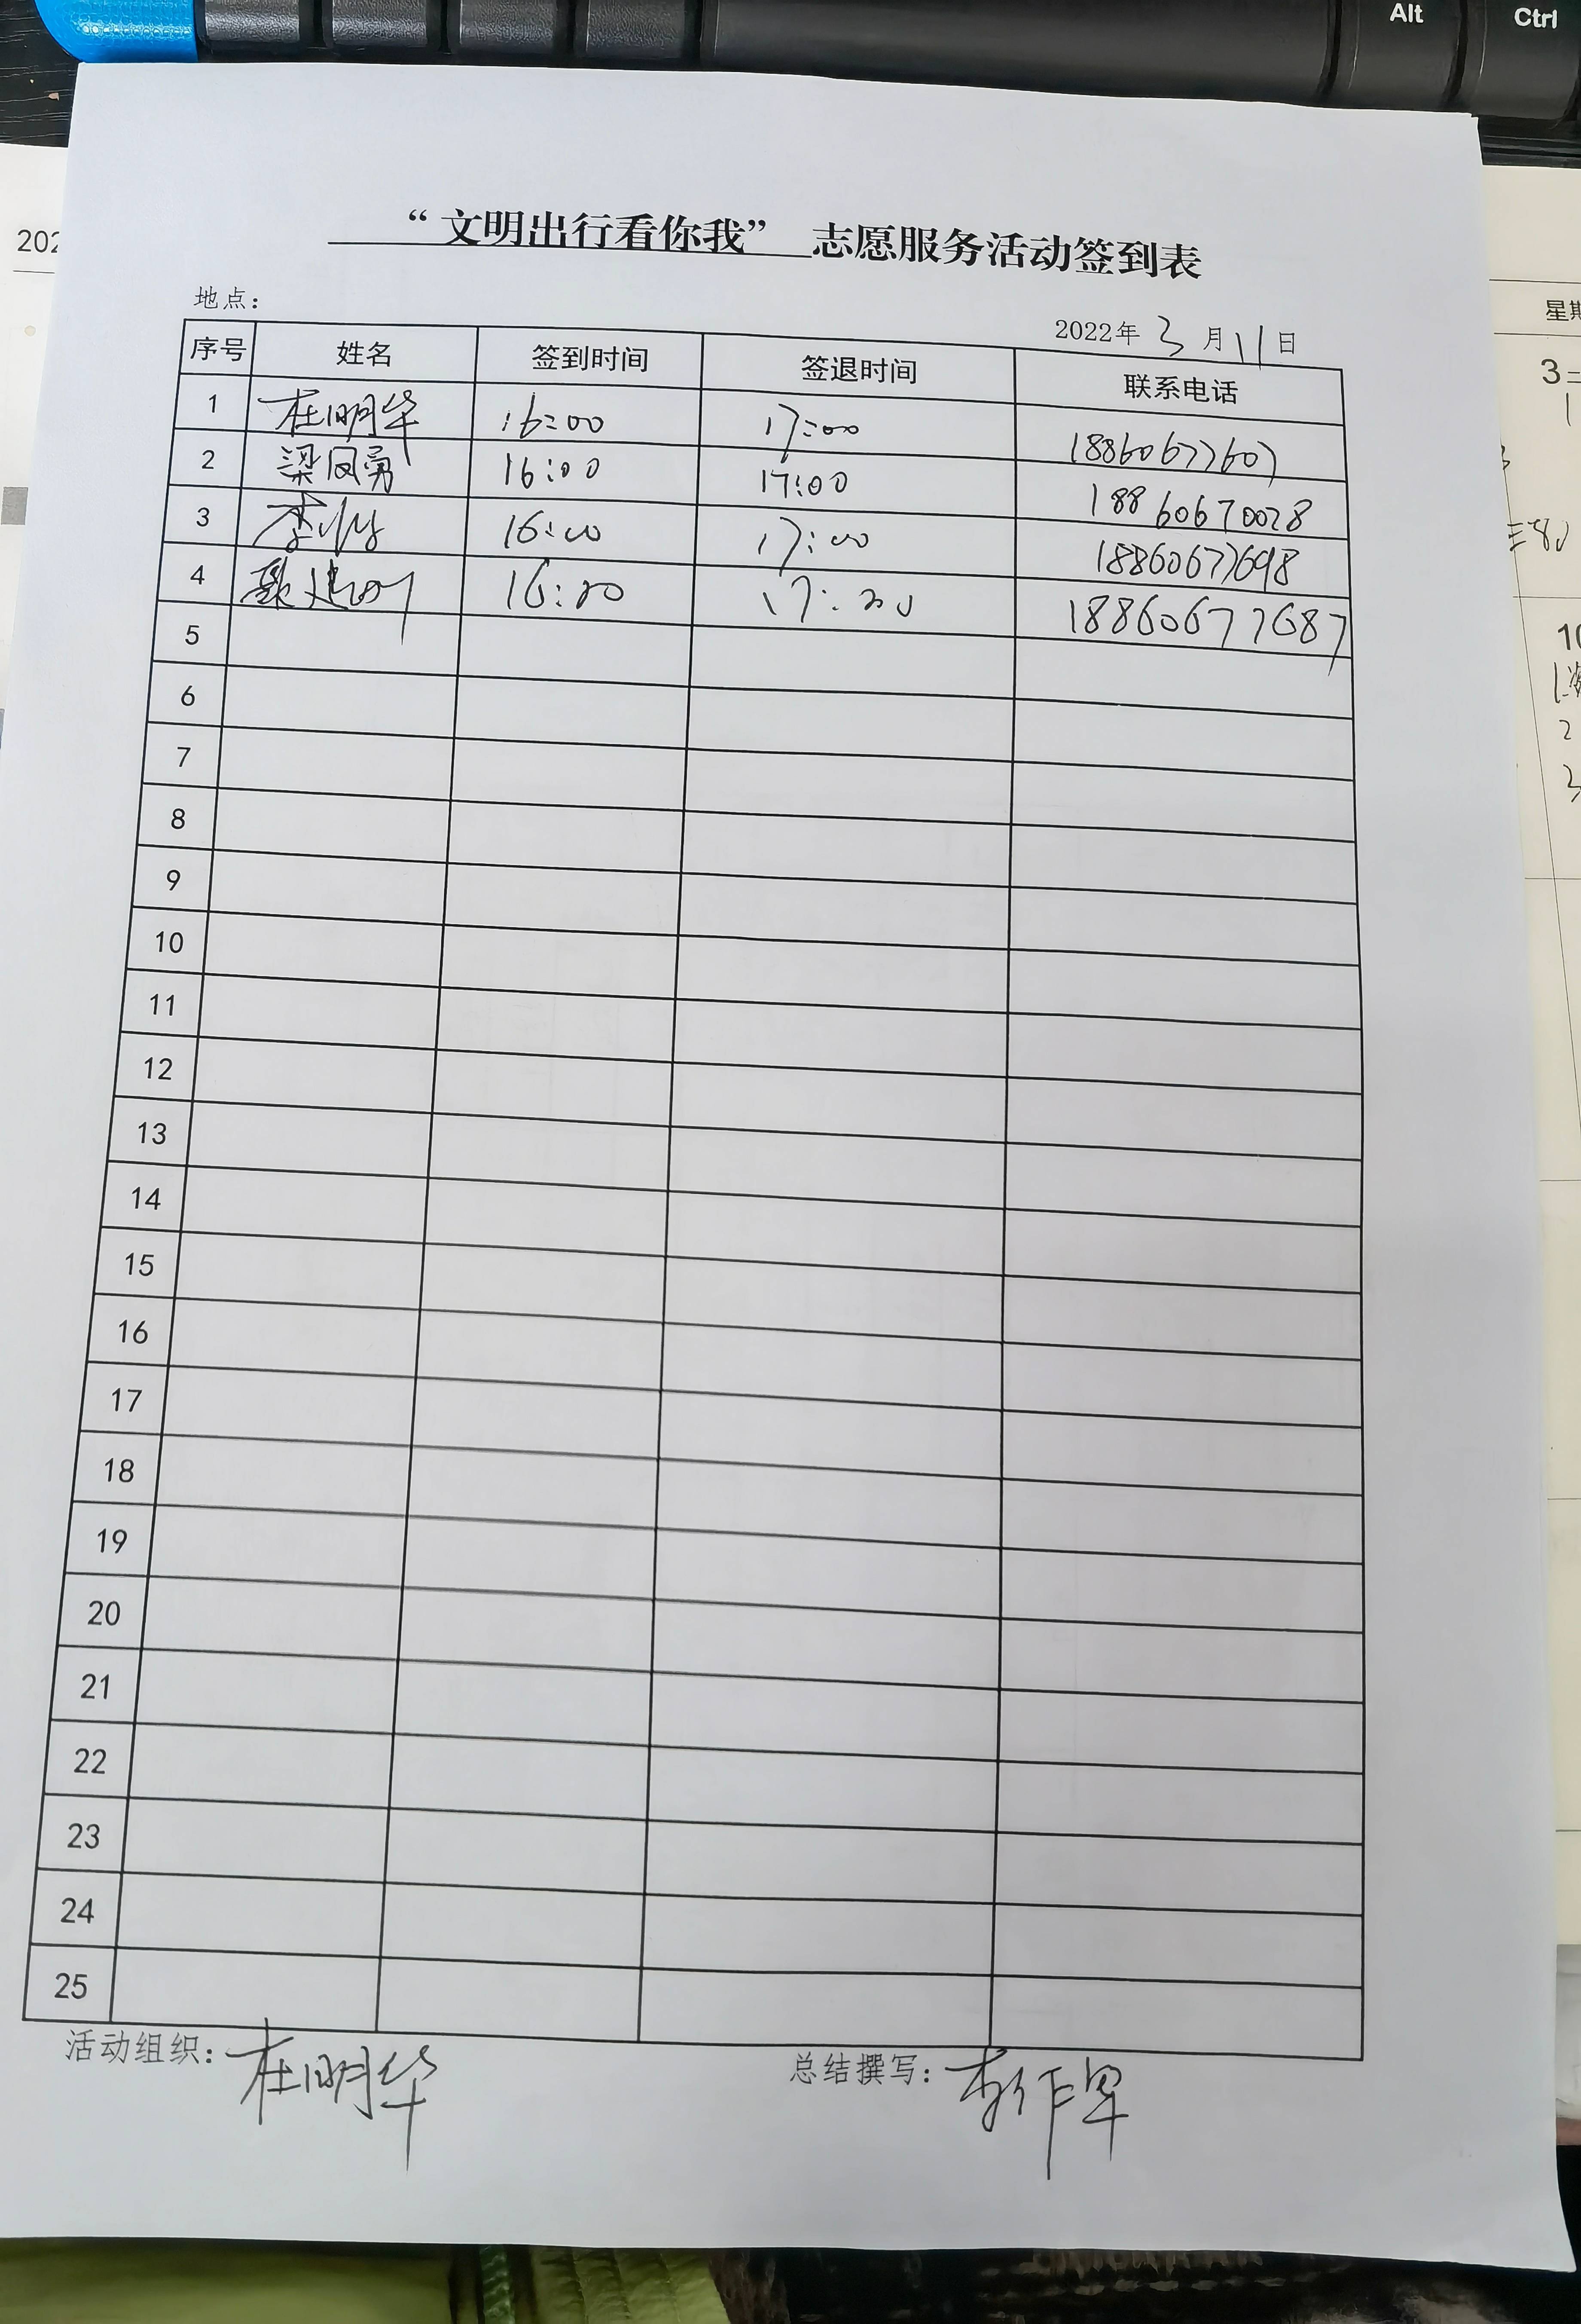 Alt Ctrl
“文明出行看你我” 志愿服务活动签到表
地点：
2022年 3 月 11 日
序号 姓名 签到时间 签退时间 联系电话
1 杜明华 16:00 17:00 18860677607
2 梁凤勇 16:00 17:00 18860670028
3 李 16:00 17:00 18860677698
4 17:20 18860677687
5
6
7
8
9
10
11
12
13
14
15
16
17
18
19
20
21
22
23
24
25
活动组织：杜明华 总结撰写：李作军
202
星期
3
10
2
3